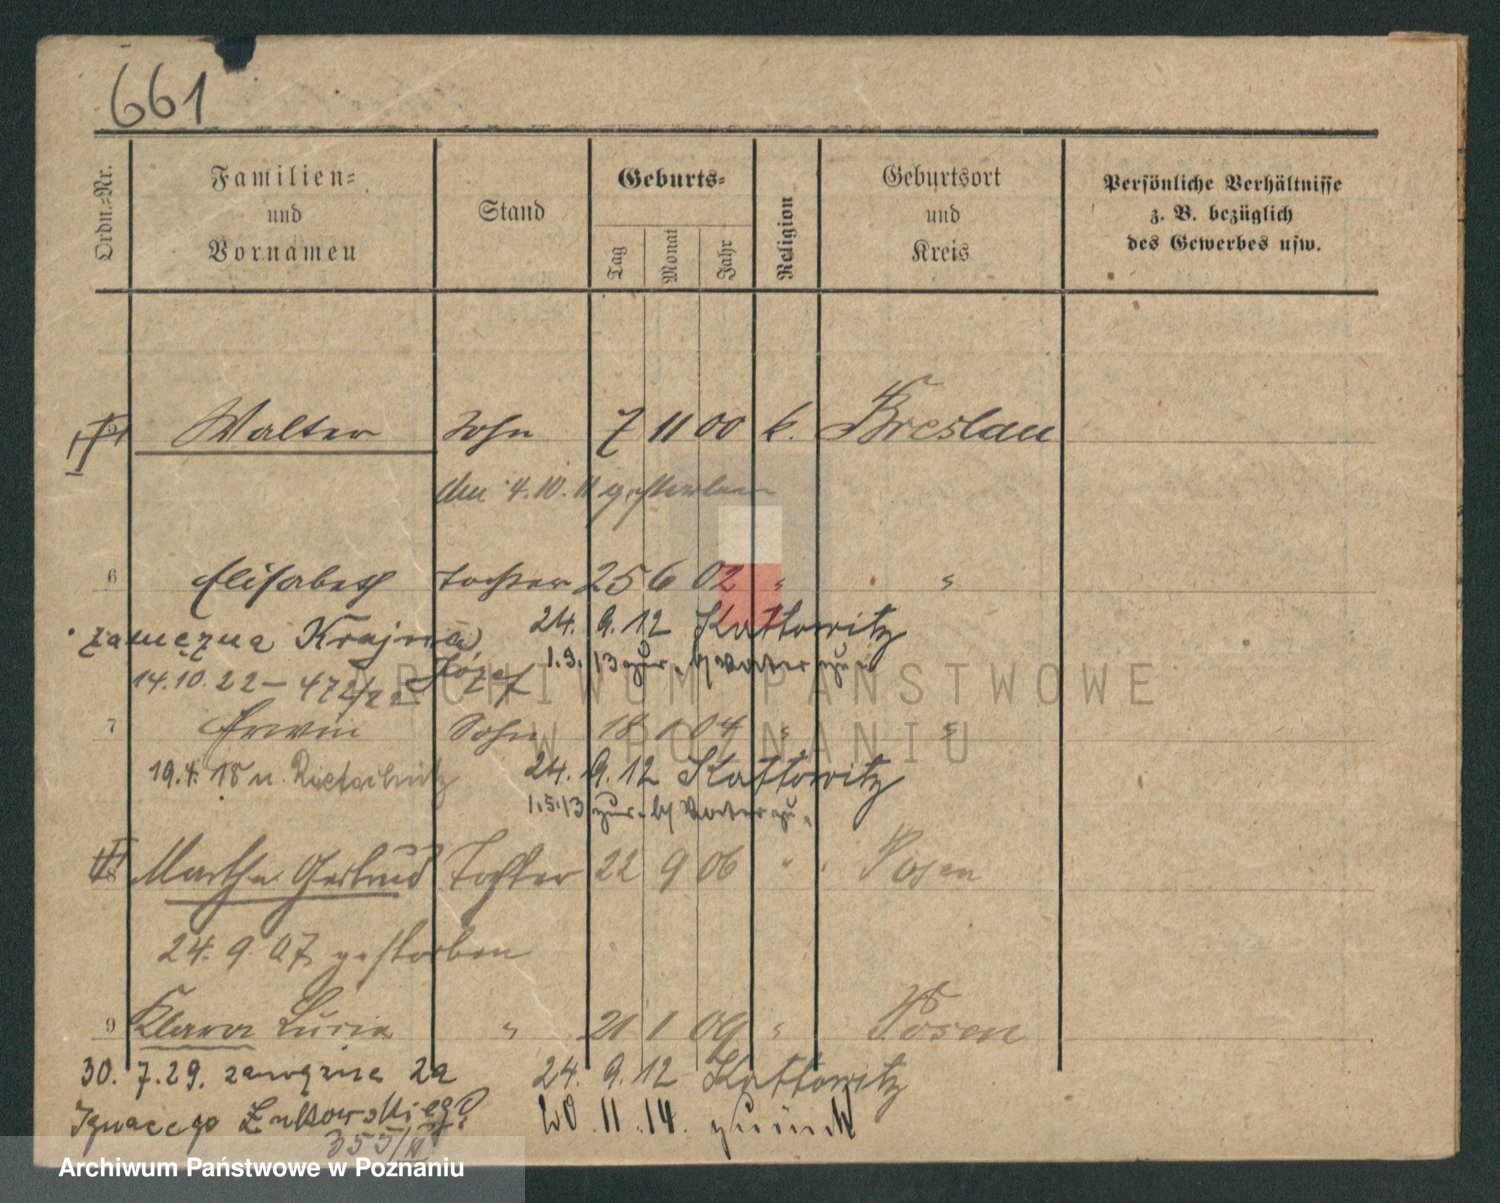 661
Ordn.-Nr.
Familien-
und
Vornamen
Stand
Geburts-
Tag
Monat
Jahr
Religion
Geburtsort
und
Kreis
Persönliche Verhältnisse
z. B. bezüglich
des Gewerbes usw.
Walter Sohn 7 11 00 k. Breslau
den 4.10.11 gestorben
6 Elisabeth Tochter 25 6 02 " "
24. 9. 12 Kattowitz
zamężna Krajna
Józef
1.5.13 zur. b/ Vater
14.10.22 – 472/22
7 Erwin Sohn 18 1 04 " "
24. 9. 12 Kattowitz
19.4.18 n.
1.5.13 zur. b/ Vater
8 Martha Gertrud Tochter 22 9 06 " Posen
24. 9 07 gestorben
9 Klara Lucie " 21 1 09 " Posen
30. 7. 29. zamężna za 24. 9. 12 Kattowitz
Ignacego Żutkowskiego 20. 11. 14. zurück
355/
ARCHIWUM PAŃSTWOWE
W POZNANIU
Archiwum Państwowe w Poznaniu